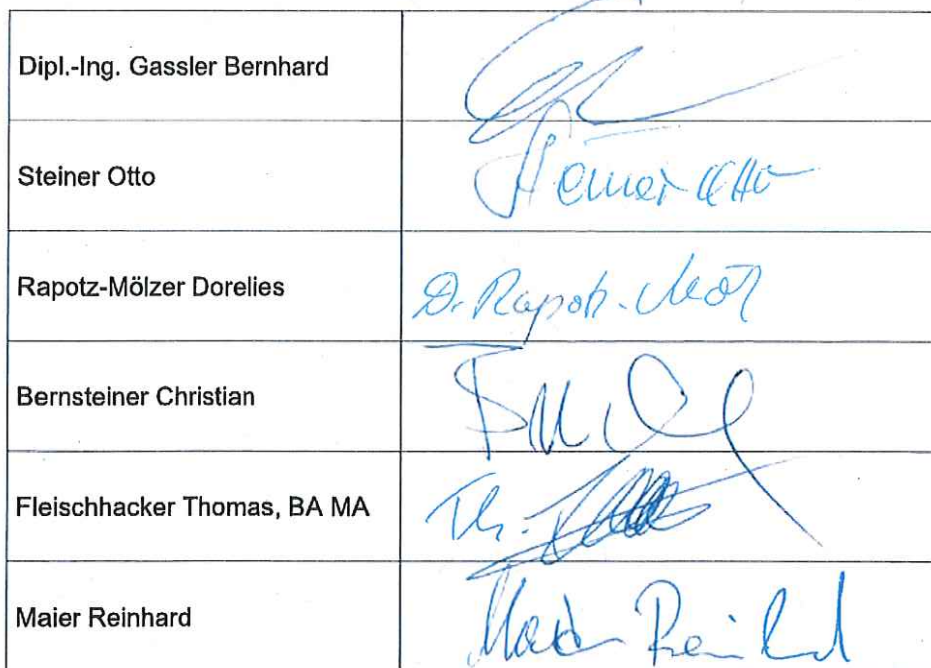 Dipl.-Ing. Gassler Bernhard
Steiner Otto Steiner Otto
Rapotz-Mölzer Dorelies D. Rapotz-Möl
Bernsteiner Christian
Fleischhacker Thomas, BA MA Th.
Maier Reinhard Maier Reinhard